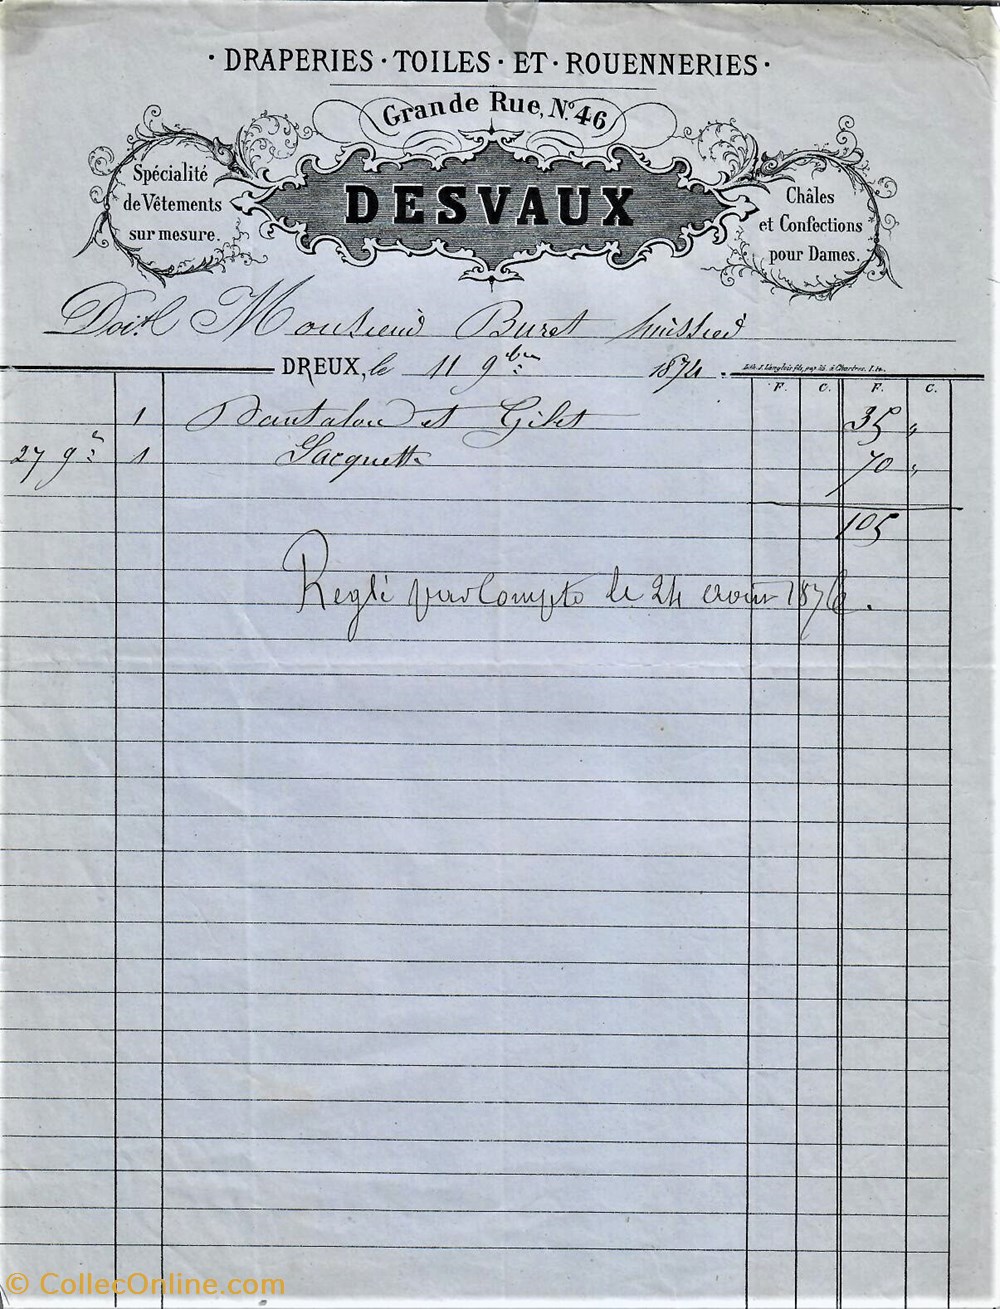 · DRAPERIES · TOILES · ET · ROUENNERIES ·
Grande Rue, N.º 46
DESVAUX
Spécialité
de Vêtements
sur mesure.
Châles
et Confections
pour Dames.
Doit Monsieur Buret huissier
DREUX, le 11 9bre 1874.
Lith. J. Langlois fils, pap. à Chartres.
F. C. F. C.
1 Pantalon et Gilet 35 "
27 9re 1 Jacquette 70 "
105
Reglé par Compte le 24 Aout 1876.
© CollecOnline.com